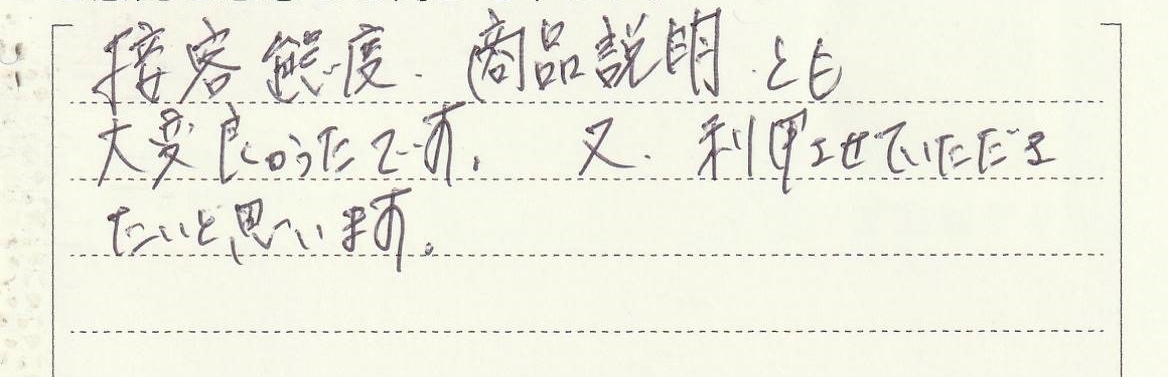 接客態度、商品説明とも
大変良かったです。又、利用させていただき
たいと思います。